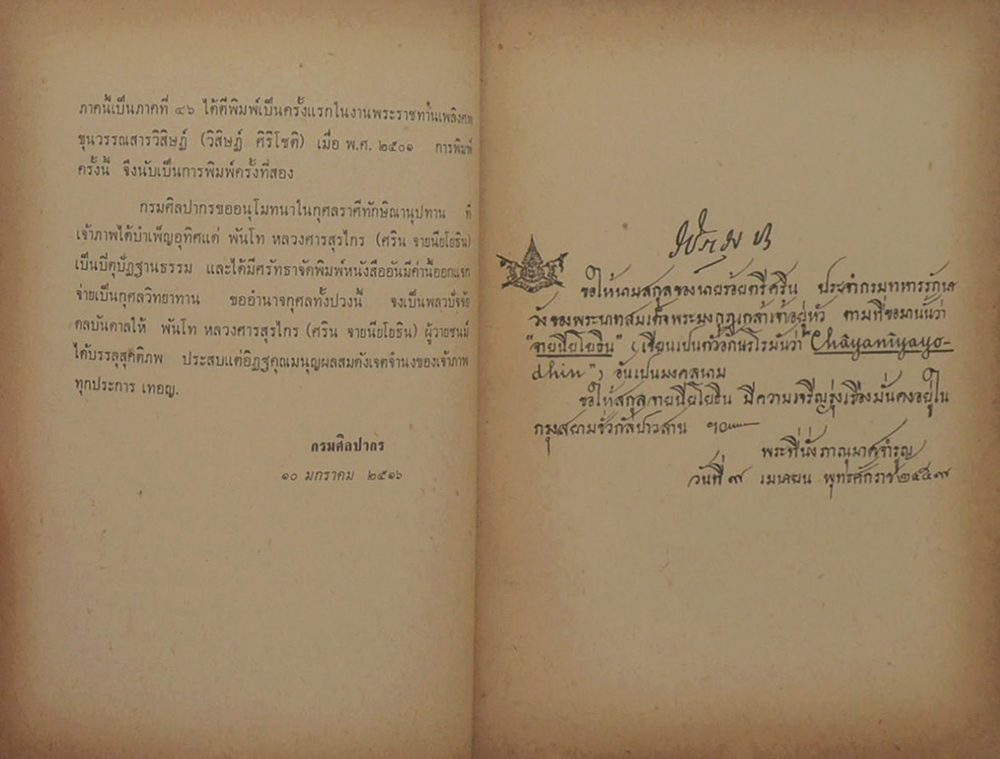 ภาคนี้เป็นภาคที่ ๔๖ ได้ตีพิมพ์เป็นครั้งแรกในงานพระราชทานเพลิงศพ
ขุนวรรณสารวิสิษฏ์ (วิสิษฏ์ ศิริโชติ) เมื่อ พ.ศ. ๒๕๐๑ การพิมพ์
ครั้งนี้ จึงนับเป็นการพิมพ์ครั้งที่สอง
กรมศิลปากรขออนุโมทนาในกุศลราศีทักษิณานุปทาน ที่
เจ้าภาพได้บำเพ็ญอุทิศแด่ พันโท หลวงศารสุรไกร (ศริน จายนียโยธิน)
เป็นปีตุปัฏฐานธรรม และได้มีศรัทธาจัดพิมพ์หนังสืออันมีค่านี้ออกแจก
จ่ายเป็นกุศลวิทยาทาน ขออำนาจกุศลทั้งปวงนี้ จงเป็นพลวปัจจัย
ดลบันดาลให้ พันโท หลวงศารสุรไกร (ศริน จายนียโยธิน) ผู้วายชนม์
ได้บรรลุสุคติภพ ประสบแต่อิฏฐคุณมนุญผลสมดังเจตจำนงของเจ้าภาพ
ทุกประการ เทอญ.
กรมศิลปากร
๑๐ มกราคม ๒๕๑๖
ขอให้นามสกุลของนายร้อยตรีศริน ประจำกรมทหารรักษ
วังของพระบาทสมเด็จพระมงกุฎเกล้าเจ้าอยู่หัว ตามที่ขอมานั้นว่า
"จายนียโยธิน" (เขียนเป็นตัวอักษรโรมันว่า "Châyanîyayo-
dhin") อันเป็นมงคลนาม
ขอให้สกุลจายนียโยธิน มีความเจริญรุ่งเรืองมั่นคงอยู่ใน
กรุงสยามชั่วกัลปาวสาน
พระที่นั่งภาณุมาศจำรูญ
วันที่ ๙ เมษายน พุทธศักราช ๒๔๕๙